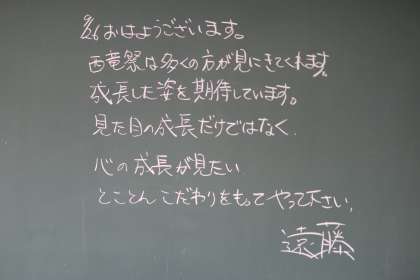 9/26 おはようございます。
西竜祭は多くの方が見にきてくれます。
成長した姿を期待しています。
見た目の成長だけではなく、
心の成長が見たい
とことんこだわりをもってやって下さい、
遠藤